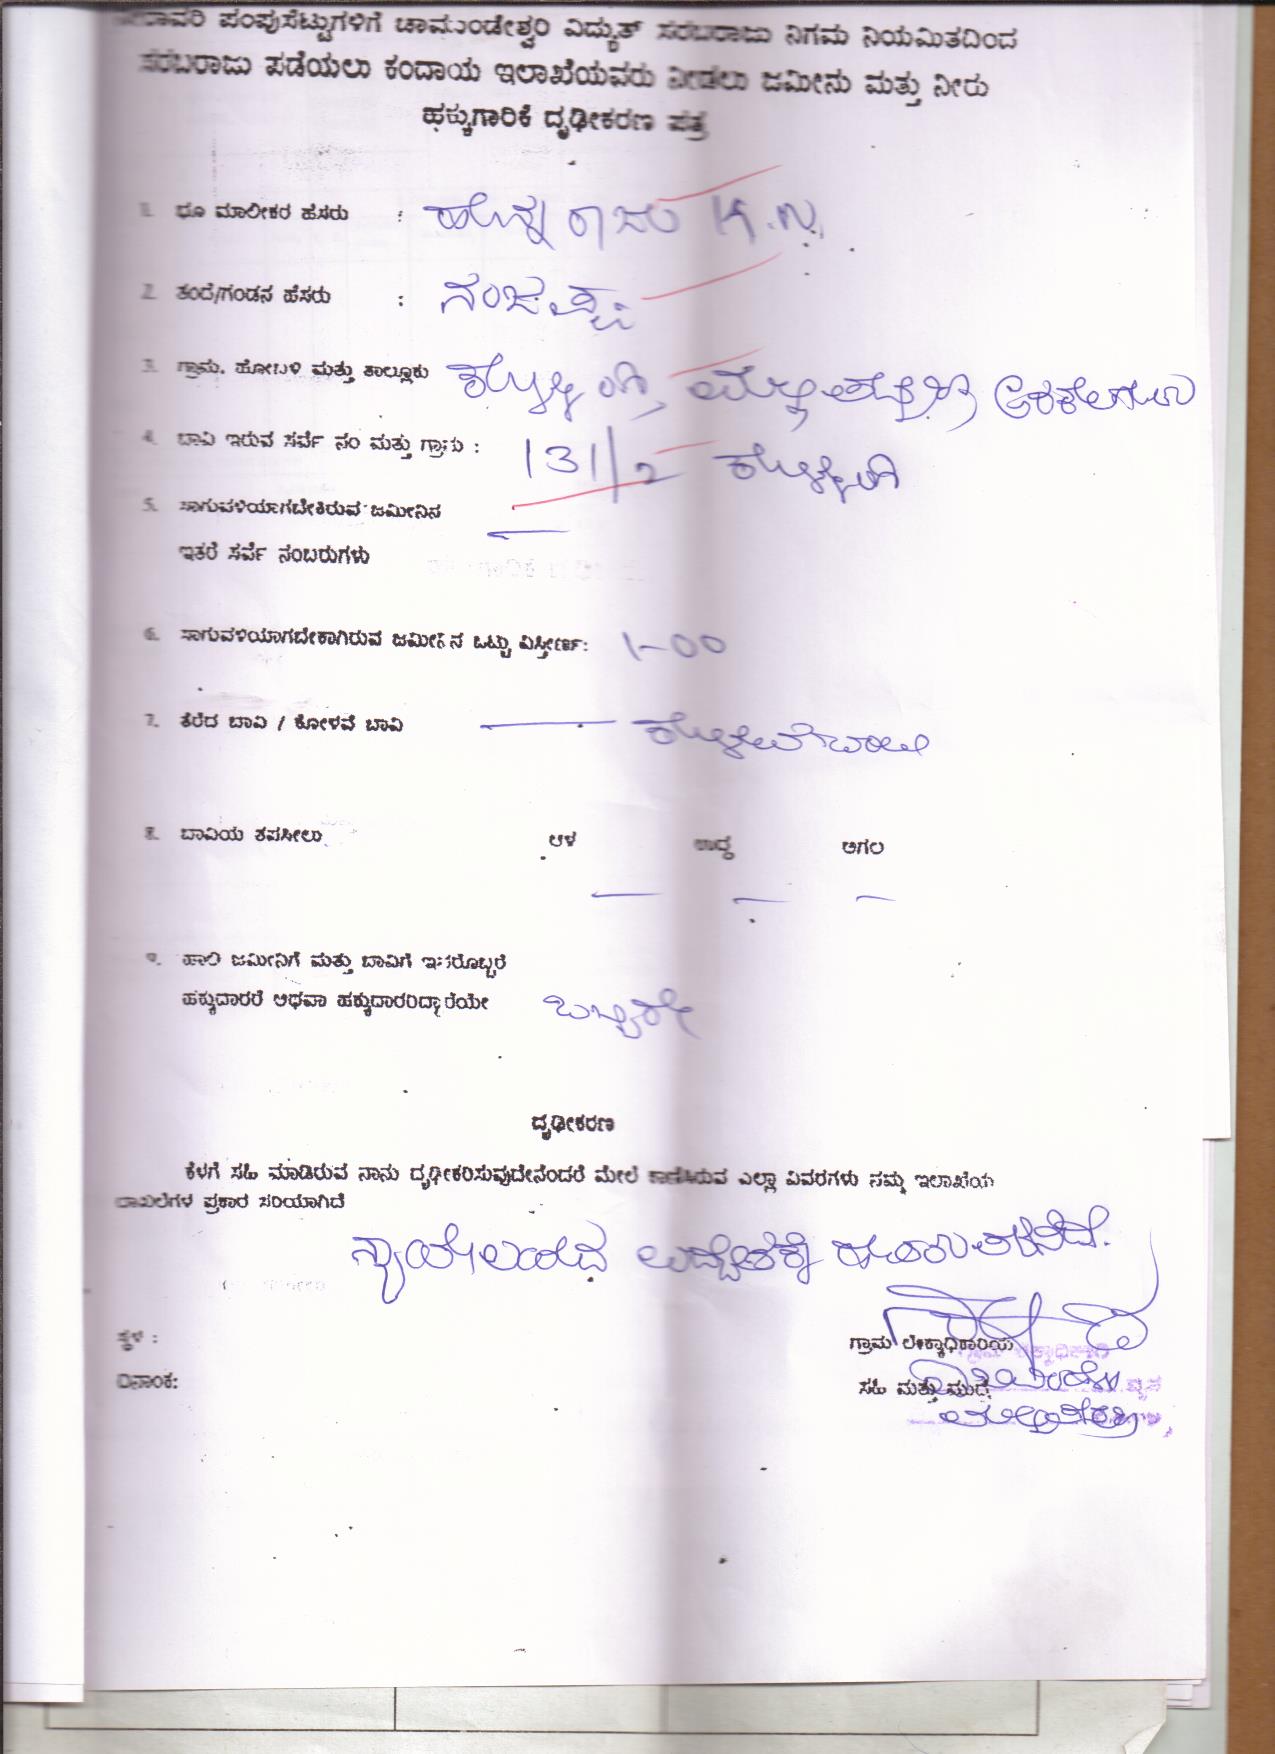 ಪಂಪುಸೆಟ್ಟುಗಳಿಗೆ ಚಾಮುಂಡೇಶ್ವರಿ ವಿದ್ಯುತ್ ಸರಬರಾಜು ನಿಗಮ ನಿಯಮಿತದಿಂದ
ಸರಬರಾಜು ಪಡೆಯಲು ಕಂದಾಯ ಇಲಾಖೆಯವರು ನೀಡಲು ಜಮೀನು ಮತ್ತು ನೀರು
ಹಕ್ಕುಗಾರಿಕೆ ದೃಢೀಕರಣ ಪತ್ರ
1. ಭೂ ಮಾಲೀಕರ ಹೆಸರು : ಹೊನ್ನರಾಜು K.N.
2. ತಂದೆ/ಗಂಡನ ಹೆಸರು : ನಂಜಪ್ಪ
3. ಗ್ರಾಮ, ಹೋಬಳಿ ಮತ್ತು ತಾಲ್ಲೂಕು
4. ಬಾವಿ ಇರುವ ಸರ್ವೆ ನಂ ಮತ್ತು ಗ್ರಾಮ : 131/2
5. ಸಾಗುವಳಿಯಾಗಬೇಕಿರುವ ಜಮೀನಿನ
ಇತರೆ ಸರ್ವೆ ನಂಬರುಗಳು
6. ಸಾಗುವಳಿಯಾಗಬೇಕಾಗಿರುವ ಜಮೀನಿನ ಒಟ್ಟು ವಿಸ್ತೀರ್ಣ: 1-00
7. ತೆರೆದ ಬಾವಿ / ಕೋಳವೆ ಬಾವಿ — ಕೊಳವೆಬಾವಿ
8. ಬಾವಿಯ ತಪಸೀಲು ಆಳ ಉದ್ದ ಅಗಲ
— — —
9. ಹಾಲಿ ಜಮೀನಿಗೆ ಮತ್ತು ಬಾವಿಗೆ ಇವರೊಬ್ಬರೆ
ಹಕ್ಕುದಾರರೆ ಅಥವಾ ಹಕ್ಕುದಾರರಿದ್ದಾರೆಯೇ ಒಬ್ಬರೇ
ದೃಢೀಕರಣ
ಕೆಳಗೆ ಸಹಿ ಮಾಡಿರುವ ನಾನು ದೃಢೀಕರಿಸುವುದೇನೆಂದರೆ ಮೇಲೆ ಕಾಣಿಸಿರುವ ಎಲ್ಲಾ ವಿವರಗಳು ನಮ್ಮ ಇಲಾಖೆಯ
ದಾಖಲೆಗಳ ಪ್ರಕಾರ ಸರಿಯಾಗಿದೆ
ಸ್ಥಳ :
ಗ್ರಾಮ ಲೆಕ್ಕಾಧಿಕಾರಿಯ
ದಿನಾಂಕ:
ಸಹಿ ಮತ್ತು ಮುದ್ರೆ